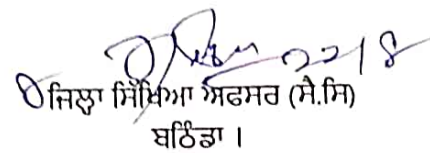 22/8
ਜਿਲ੍ਹਾ ਸਿੱਖਿਆ ਅਫਸਰ (ਸੈ.ਸਿ)
ਬਠਿੰਡਾ ।